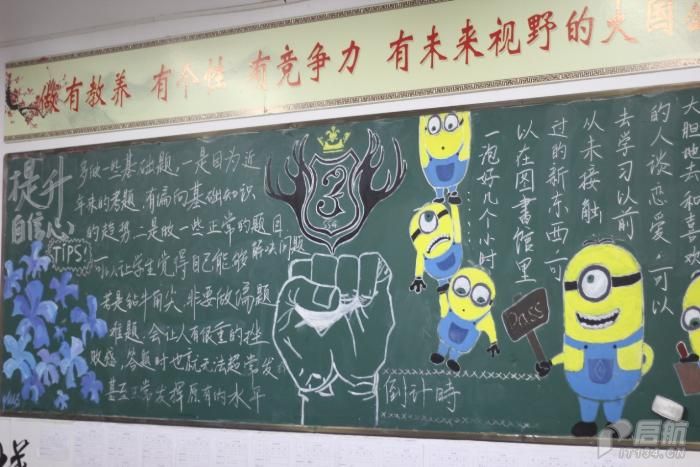 做有教养 有个性 有竞争力 有未来视野的大国
提升
自信心
TIPS:
多做一些基础题,一是因为近
年来的考题,有偏向基础知识
的趋势,二是做一些正常的题目,
可以让学生觉得自己能够解决问题
若是钻牛角尖,非要做偏题、
难题,会让人有很重的挫
败感,答题时也就无法超常发
甚至正常发挥原有的水平
3
倒计時
一泡好几个小时
以在图書館里
过的新东西,可
从未接触
去学习以前
的人谈恋爱,可以
Pass
启航